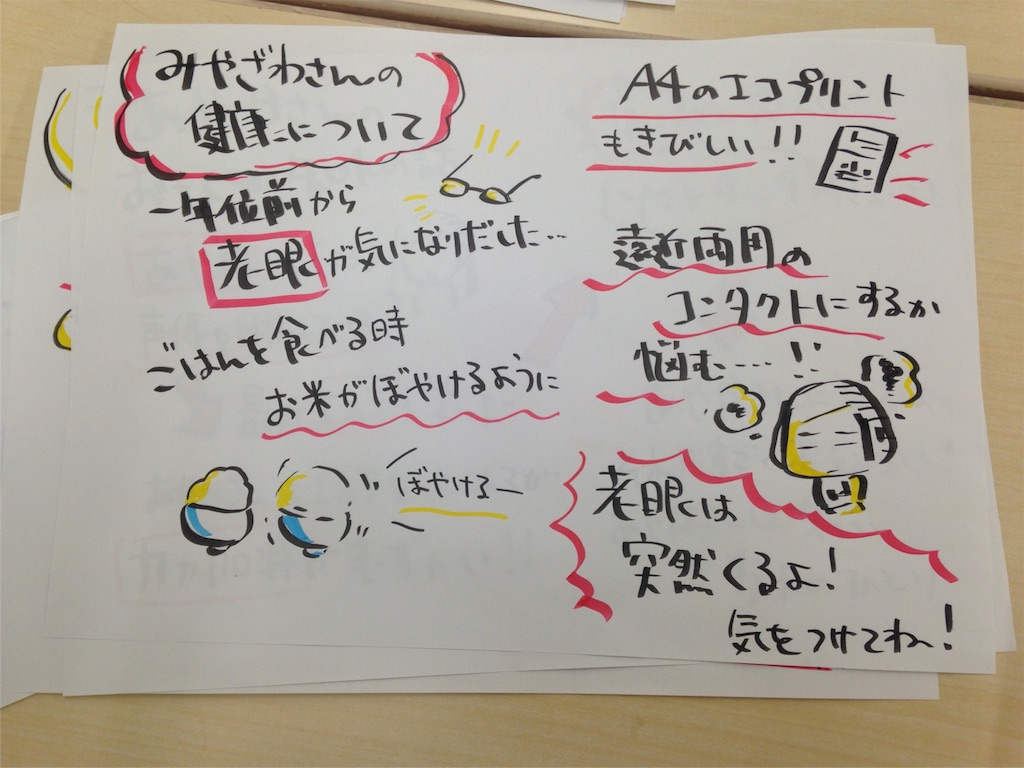 みやざわさんの
健康について
一年位前から
老眼が気になりだした…
ごはんを食べる時
お米がぼやけるように
ぼやけるー
A4のエコプリント
もきびしい!!
遠近両用の
コンタクトにするか
悩む……!!
老眼は
突然くるよ!
気をつけてね〜!